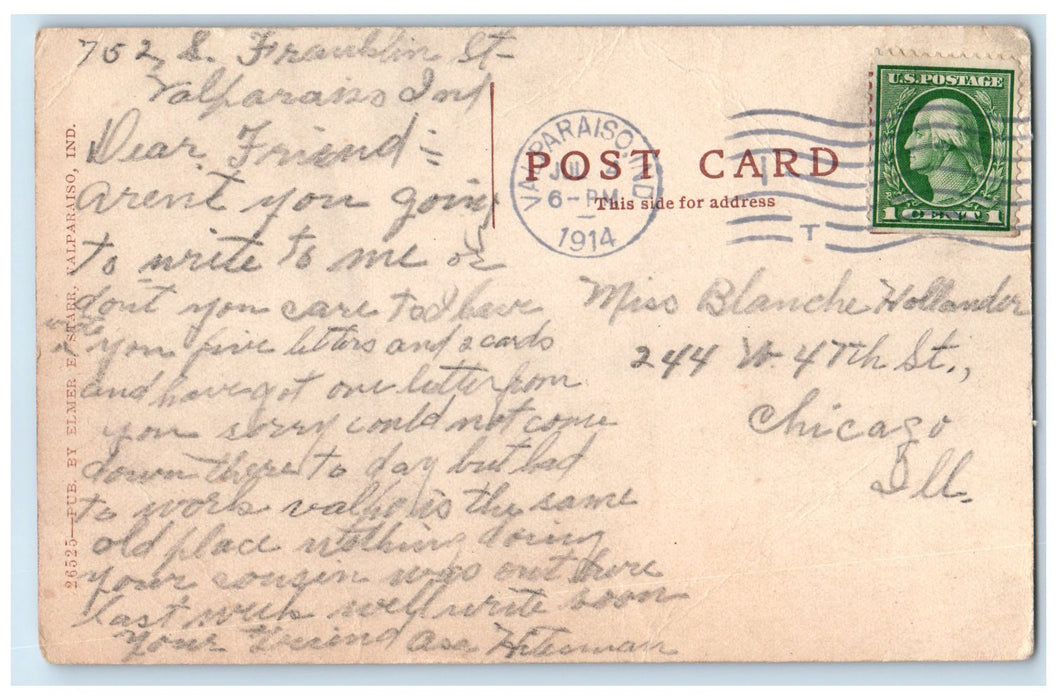 752 S. Franklin St-
Valparaiso Ind
Dear Friend:-
arent you going
to write to me or
dont you care to I have
wrote
you five letters and 2 cards
and have got one letter from
you sorry could not come
down there to day but had
to work valpo is the same
old place nothing doing
your cousin was out here
last week well write soon
your Friend
26525—PUB. BY ELMER E. STARR, VALPARAISO, IND.
POST CARD
This side for address
VALPARAISO, IND
JUL
6-PM
1914
T
U.S. POSTAGE
1 CENT 1
Miss Blanche Hollander
244 W. 47th St.,
Chicago
Ill.